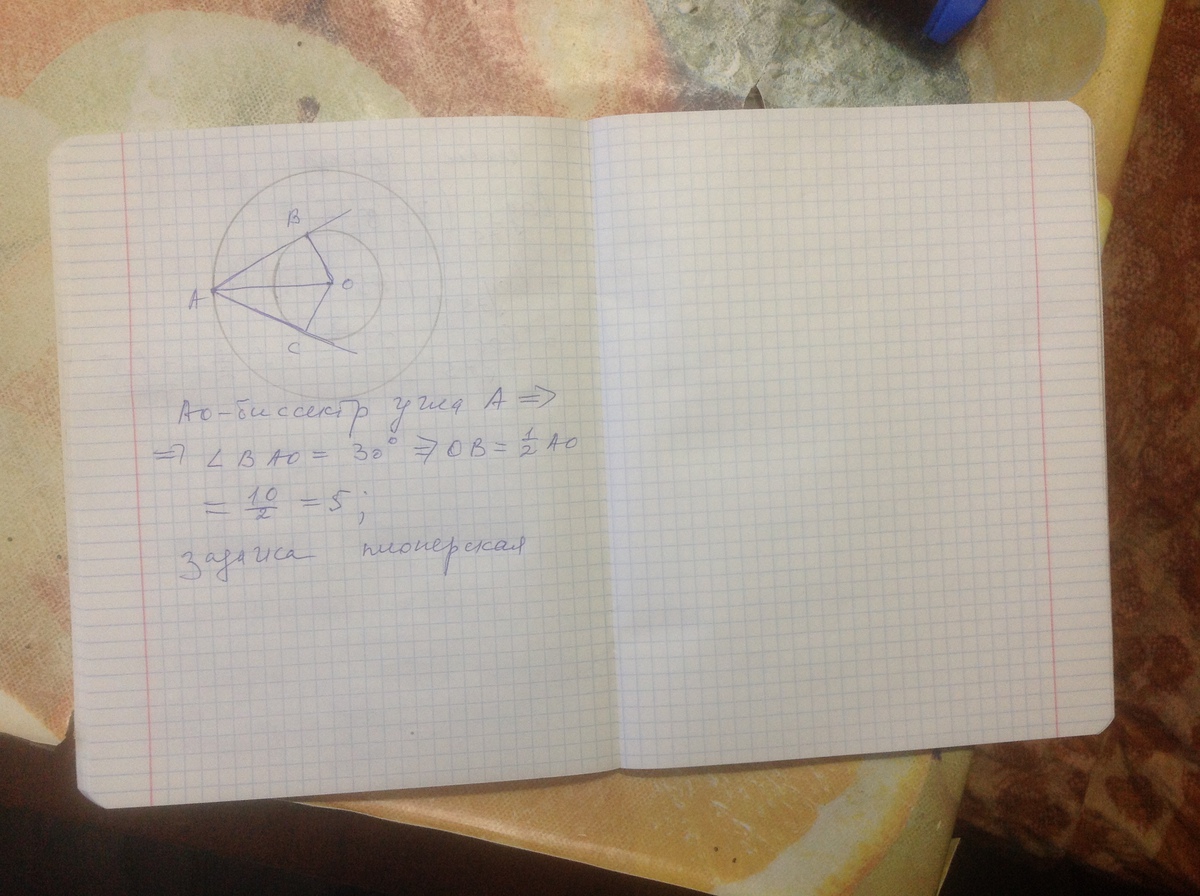 B
A
O
C
AO-биссектр угла A ⇒
⇒ ∠BAO = 30° ⇒ OB = 1/2 AO
= 10/2 = 5;
Задачка пионерская